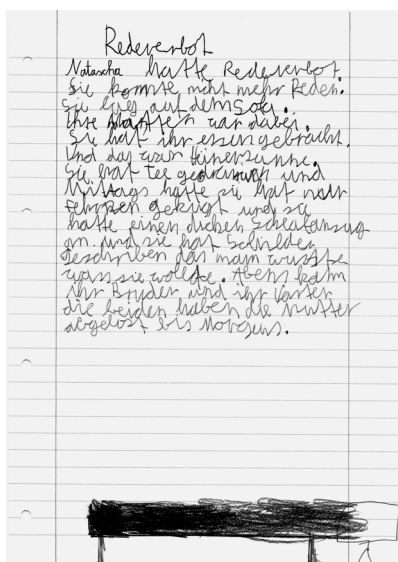 Redeverbot
Natascha hatte Redeverbot.
Sie konnte nicht mehr Reden.
Sie lag auf dem Sofa.
Ihre Mutter war dabei.
Sie hat ihr essen gebracht.
Und das war Hünersuppe.
Sie hat Tee gedrunken und
Mittags hatte sie hat
gekrigt und sie
hatte einen dicken Schlafanzug
an. und sie hat Schilder
geschriben das man wusste
was sie wollte. Abens kam
ihr Bruder und ihr Vater
die beiden haben die Mutter
abgelöst bis Morgens.